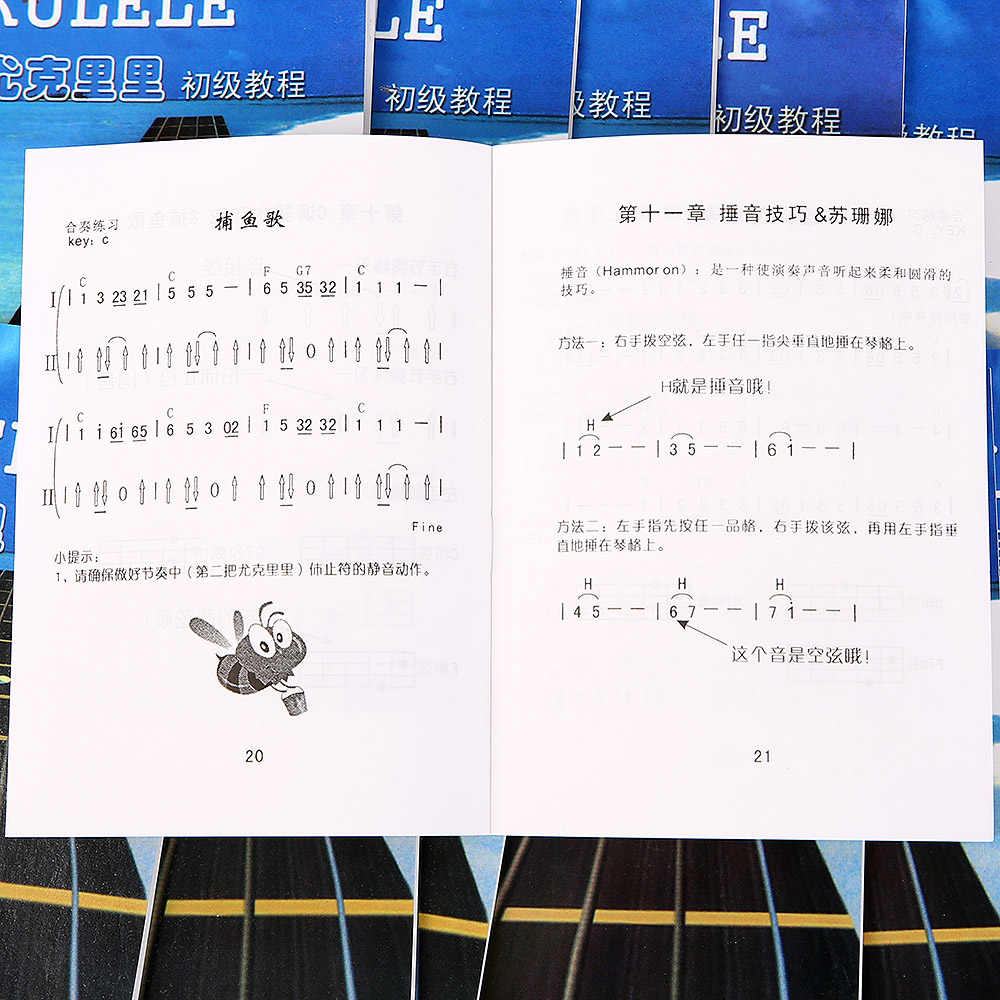 ULELE
尤克里里 初级教程
LE
初级教程
初级教程
LE
初级教程
级教程
合奏练习
key: c
捕鱼歌
C C F G7 C
I | 1 3 23 21 | 5 5 5 — | 6 5 35 32 | 1 1 1 — |
II O
C C F C
I | 1 i 6i 65 | 6 5 3 02 | 1 5 32 32 | 1 1 1 — |
II O O O
Fine
小提示：
1、请确保做好节奏中（第二把尤克里里）休止符的静音动作。
20
第十一章 捶音技巧&苏珊娜
捶音（Hammor on）：是一种使演奏声音听起来柔和圆滑的
技巧。
方法一：右手拨空弦，左手任一指尖垂直地捶在琴格上。
H就是捶音哦！
H
| 1 2 — — | 3 5 — — | 6 i — — |
方法二：左手指先按任一品格，右手拨该弦，再用左手指垂
直地捶在琴格上。
H H H
| 4 5 — — | 6 7 — — | 7 i — — |
这个音是空弦哦！
21